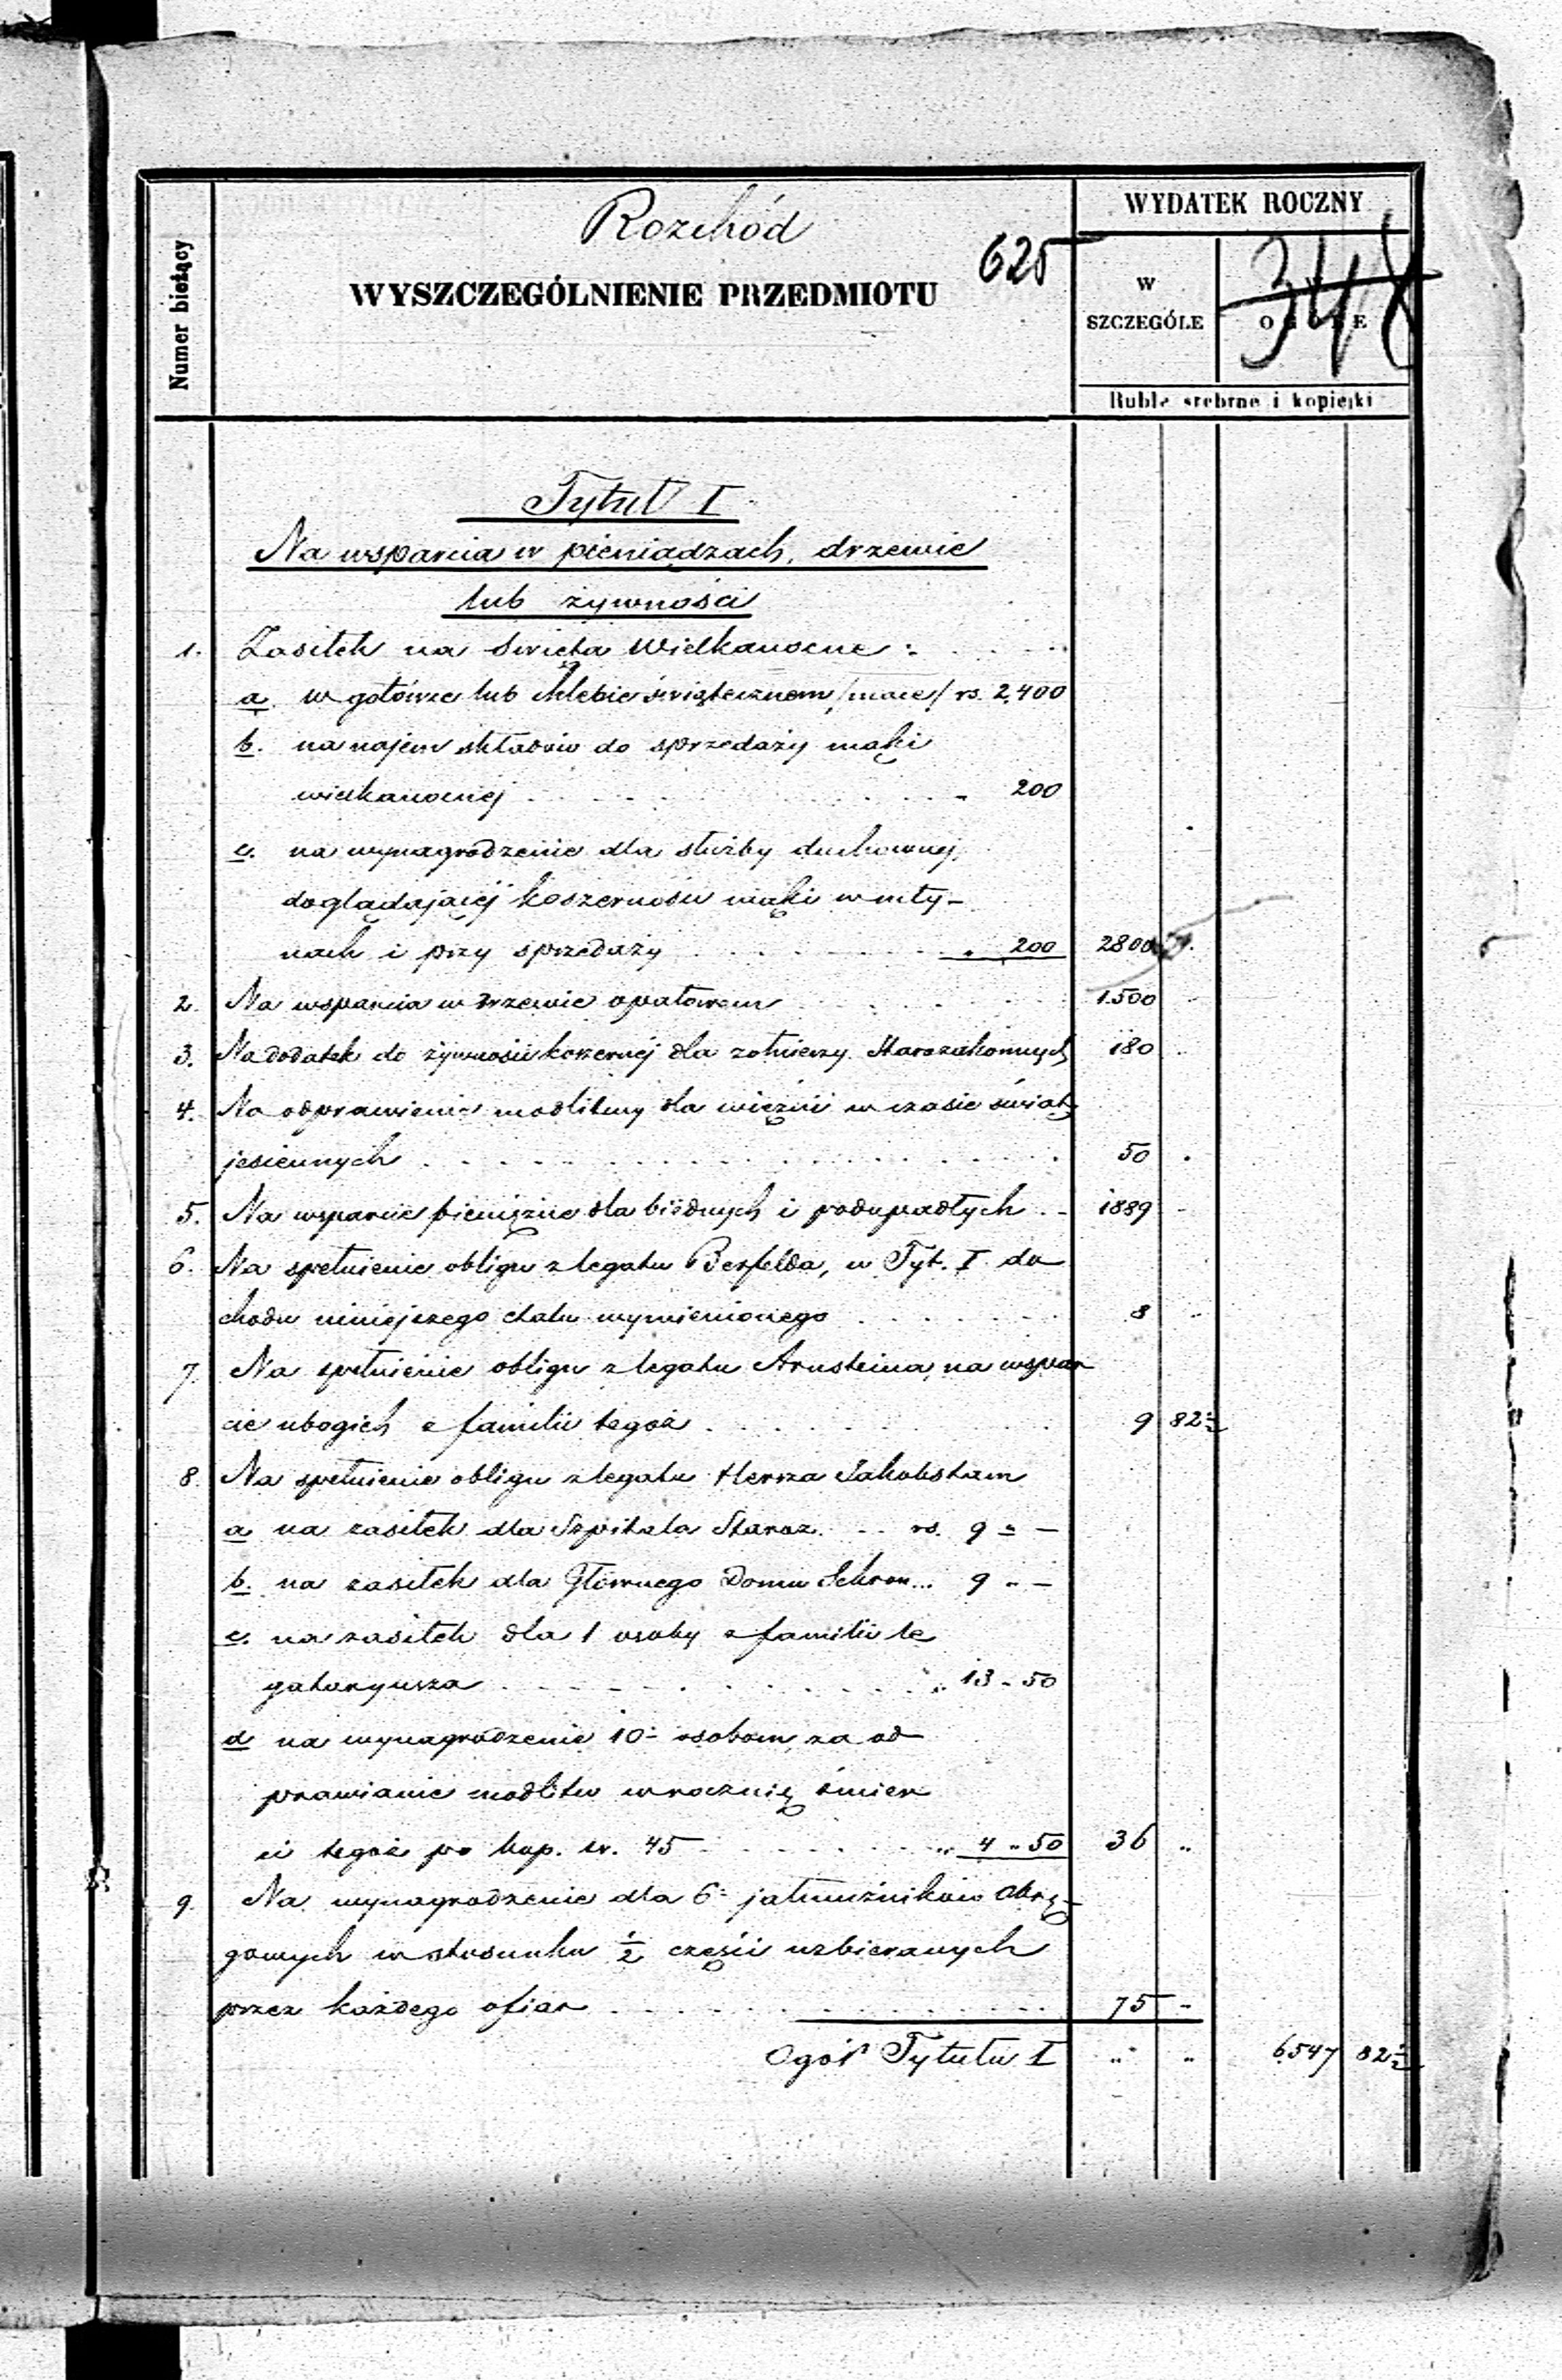 Rozchód
WYDATEK ROCZNY
625
348
Numer bieżący
WYSZCZEGÓLNIENIE PRZEDMIOTU
W SZCZEGÓLE
W OGÓLE
Ruble srebrne i kopiejki
Tytuł I
Na wsparcia w pieniądzach, drzewie
lub żywności
1. Zasiłek na Święta Wielkanocne:
a. w gotówce lub Chlebie świątecznem /mace/ rs. 2,400
b. na najem składów do sprzedaży mąki
wielkanocnej . . . . " 200
c. na wynagrodzenie dla służby duchownej,
doglądającej koszerności mąki w mły-
nach i przy sprzedaży . . . . " 200 2800
2. Na wsparcia w drzewie opałowem . . . . 1.500 "
3. Na dodatek do żywności koszernej dla żołnierzy Starozakonnych 180 "
4. Na odprawienie modlitwy dla więźni w czasie świąt
jesiennych . . . . 50 "
5. Na wsparcie pieniężne dla biednych i podupadłych . - 1889 "
6. Na spełnienie obligu z legatu Berfelda, w Tyt. I do
chodu niniejszego etatu wymienionego . . . . 8 "
7. Na spełnienie obligu z legatu Arnsteina, na wspar
cie ubogich z familii tegoż . . . . 9 82½
8. Na spełnienie obligu z legatu Hersza Jakobstam
a na zasiłek dla Szpitala Staroz. . . rs. 9 " —
b. na zasiłek dla Głównego Domu Schron... 9 " —
c. na zasiłek dla 1 osoby z familii le
gataryusza . . . . " 13 " 50
d na wynagrodzenie 10 osobom za od
prawianie modlitw w rocznicę śmier
ci tegoż po kop. sr. 45 . . . . " 4 " 50 36 "
9. Na wynagrodzenie dla 6 jałmużników Okrę-
gowych w stosunku ½ części uzbieranych
przez każdego ofiar . . . . 75 "
Ogół Tytułu I " " 6547 82½